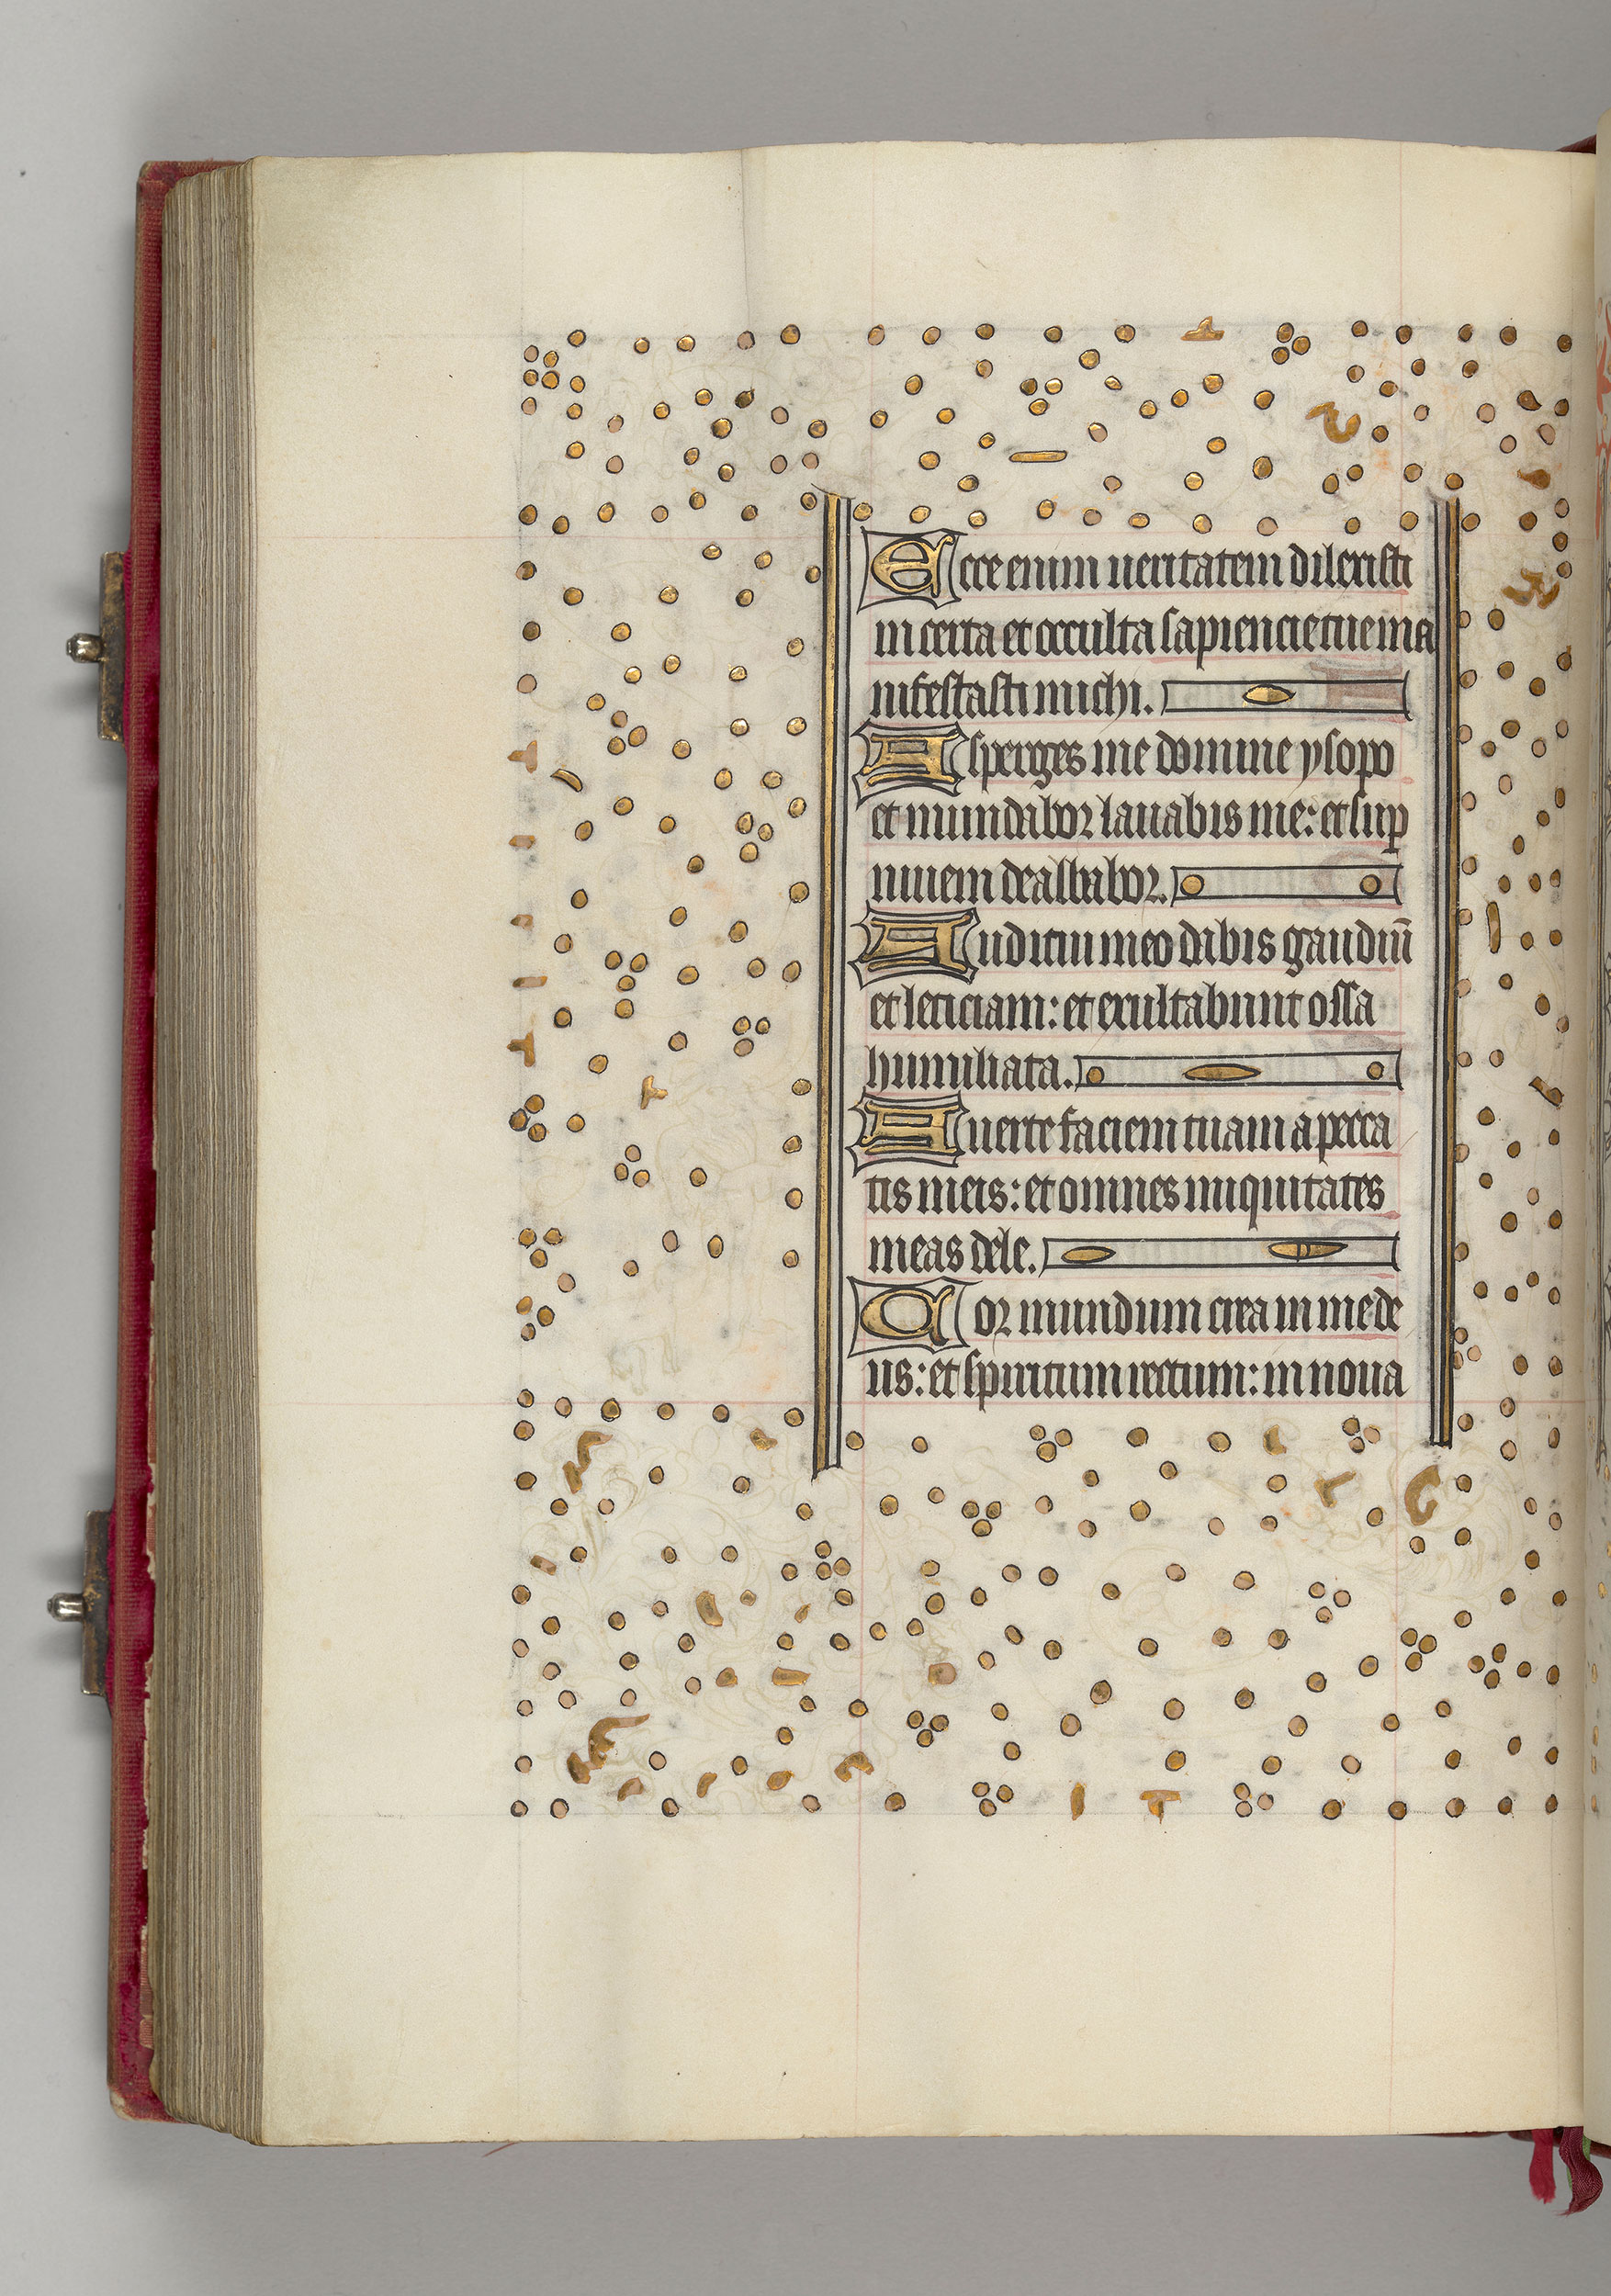 Ecce enim ueritatem dilexisti
incerta et occulta sapiencie tue ma
nifestasti michi.
Asperges me domine ysopo
et mundabor lauabis me: et sup
niuem dealbabor.
Auditui meo dabis gaudiū
et leticiam: et exultabunt ossa
humiliata.
Auerte faciem tuam a pecca
tis meis: et omnes iniquitates
meas dele.
Cor mundum crea in me de
us: et spiritum rectum: in noua